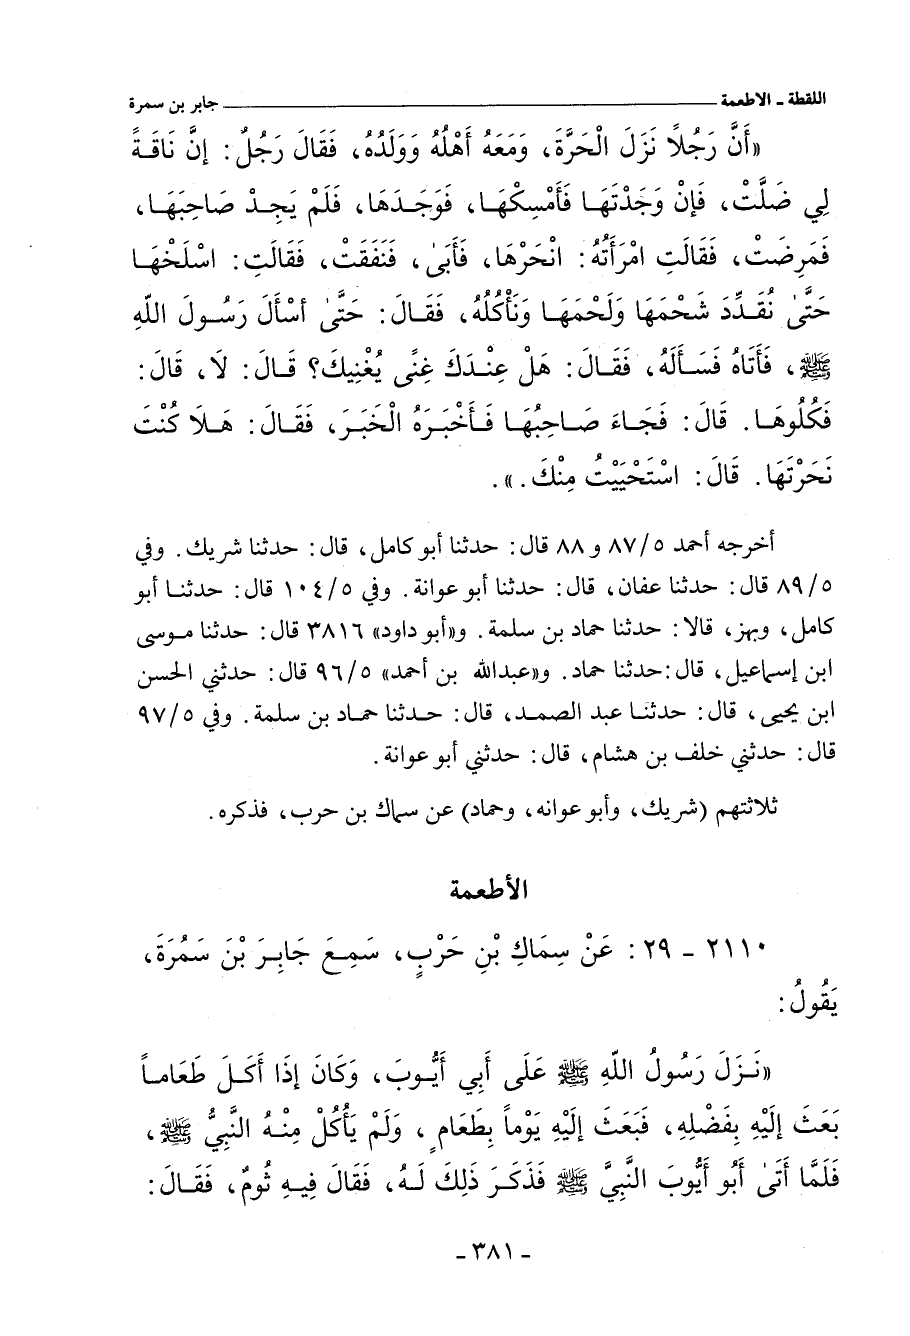 اللقطة - الاطعمة جابر بن سمرة
«أَنَّ رَجُلاً نَزَلَ الْحَرَّةَ، وَمَعَهُ أَهْلُهُ وَوَلَدُهُ، فَقَالَ رَجُلٌ: إِنَّ نَاقَةً
لِي ضَلَّتْ، فَإِنْ وَجَدْتَهَا فَأَمْسِكْهَا، فَوَجَدَهَا، فَلَمْ يَجِدْ صَاحِبَهَا،
فَمَرِضَتْ، فَقَالَتِ امْرَأَتُهُ: انْحَرْهَا، فَأَبَىٰ، فَنَفَقَتْ، فَقَالَتِ: اسْلَخْهَا
حَتَّىٰ نُقَدِّدَ شَحْمَهَا وَلَحْمَهَا وَنَأْكُلُهُ، فَقَالَ: حَتَّىٰ أَسْأَلَ رَسُولَ اللّهِ
ﷺ، فَأَتَاهُ فَسَأَلَهُ، فَقَالَ: هَلْ عِنْدَكَ غِنًى يُغْنِيكَ؟ قَالَ: لَا، قَالَ:
فَكُلُوهَا. قَالَ: فَجَاءَ صَاحِبُهَا فَأَخْبَرَهُ الْخَبَرَ، فَقَالَ: هَلاَ كُنْتَ
نَحَرْتَهَا. قَالَ: اسْتَحْيَيْتُ مِنْكَ.».
أخرجه أحمد ٨٧/٥ و٨٨ قال: حدثنا أبو كامل، قال: حدثنا شريك. وفي
٨٩/٥ قال: حدثنا عفان، قال: حدثنا أبو عوانة. وفي ١٠٤/٥ قال: حدثنا أبو
كامل، وبهز، قالا: حدثنا حماد بن سلمة. و«أبو داود» ٣٨١٦ قال: حدثنا موسى
ابن إسماعيل، قال:حدثنا حماد. و«عبدالله بن أحمد» ٩٦/٥ قال: حدثني الحسن
ابن يحيى، قال: حدثنا عبد الصمد، قال: حدثنا حماد بن سلمة. وفي ٩٧/٥
قال: حدثني خلف بن هشام، قال: حدثني أبو عوانة.
ثلاثتهم (شريك، وأبو عوانه، وحماد) عن سماك بن حرب، فذكره.
الأطعمة
٢١١٠ - ٢٩: عَنْ سِمَاكِ بْنِ حَرْبٍ، سَمِعَ جَابِرَ بْنَ سَمُرَةَ،
يَقُولُ:
«نَزَلَ رَسُولُ اللّهِ ﷺ عَلَى أَبِي أَيُّوبَ، وَكَانَ إِذَا أَكَلَ طَعَاماً
بَعَثَ إِلَيْهِ بِفَضْلِهِ، فَبَعَثَ إِلَيْهِ يَوْماً بِطَعَامٍ، وَلَمْ يَأْكُلْ مِنْهُ النَّبِيُّ ﷺ،
فَلَمَّا أَتَىٰ أَبُو أَيُّوبَ النَّبِيَّ ﷺ فَذَكَرَ ذَلِكَ لَهُ، فَقَالَ فِيهِ ثُومٌ، فَقَالَ:
- ٣٨١ -